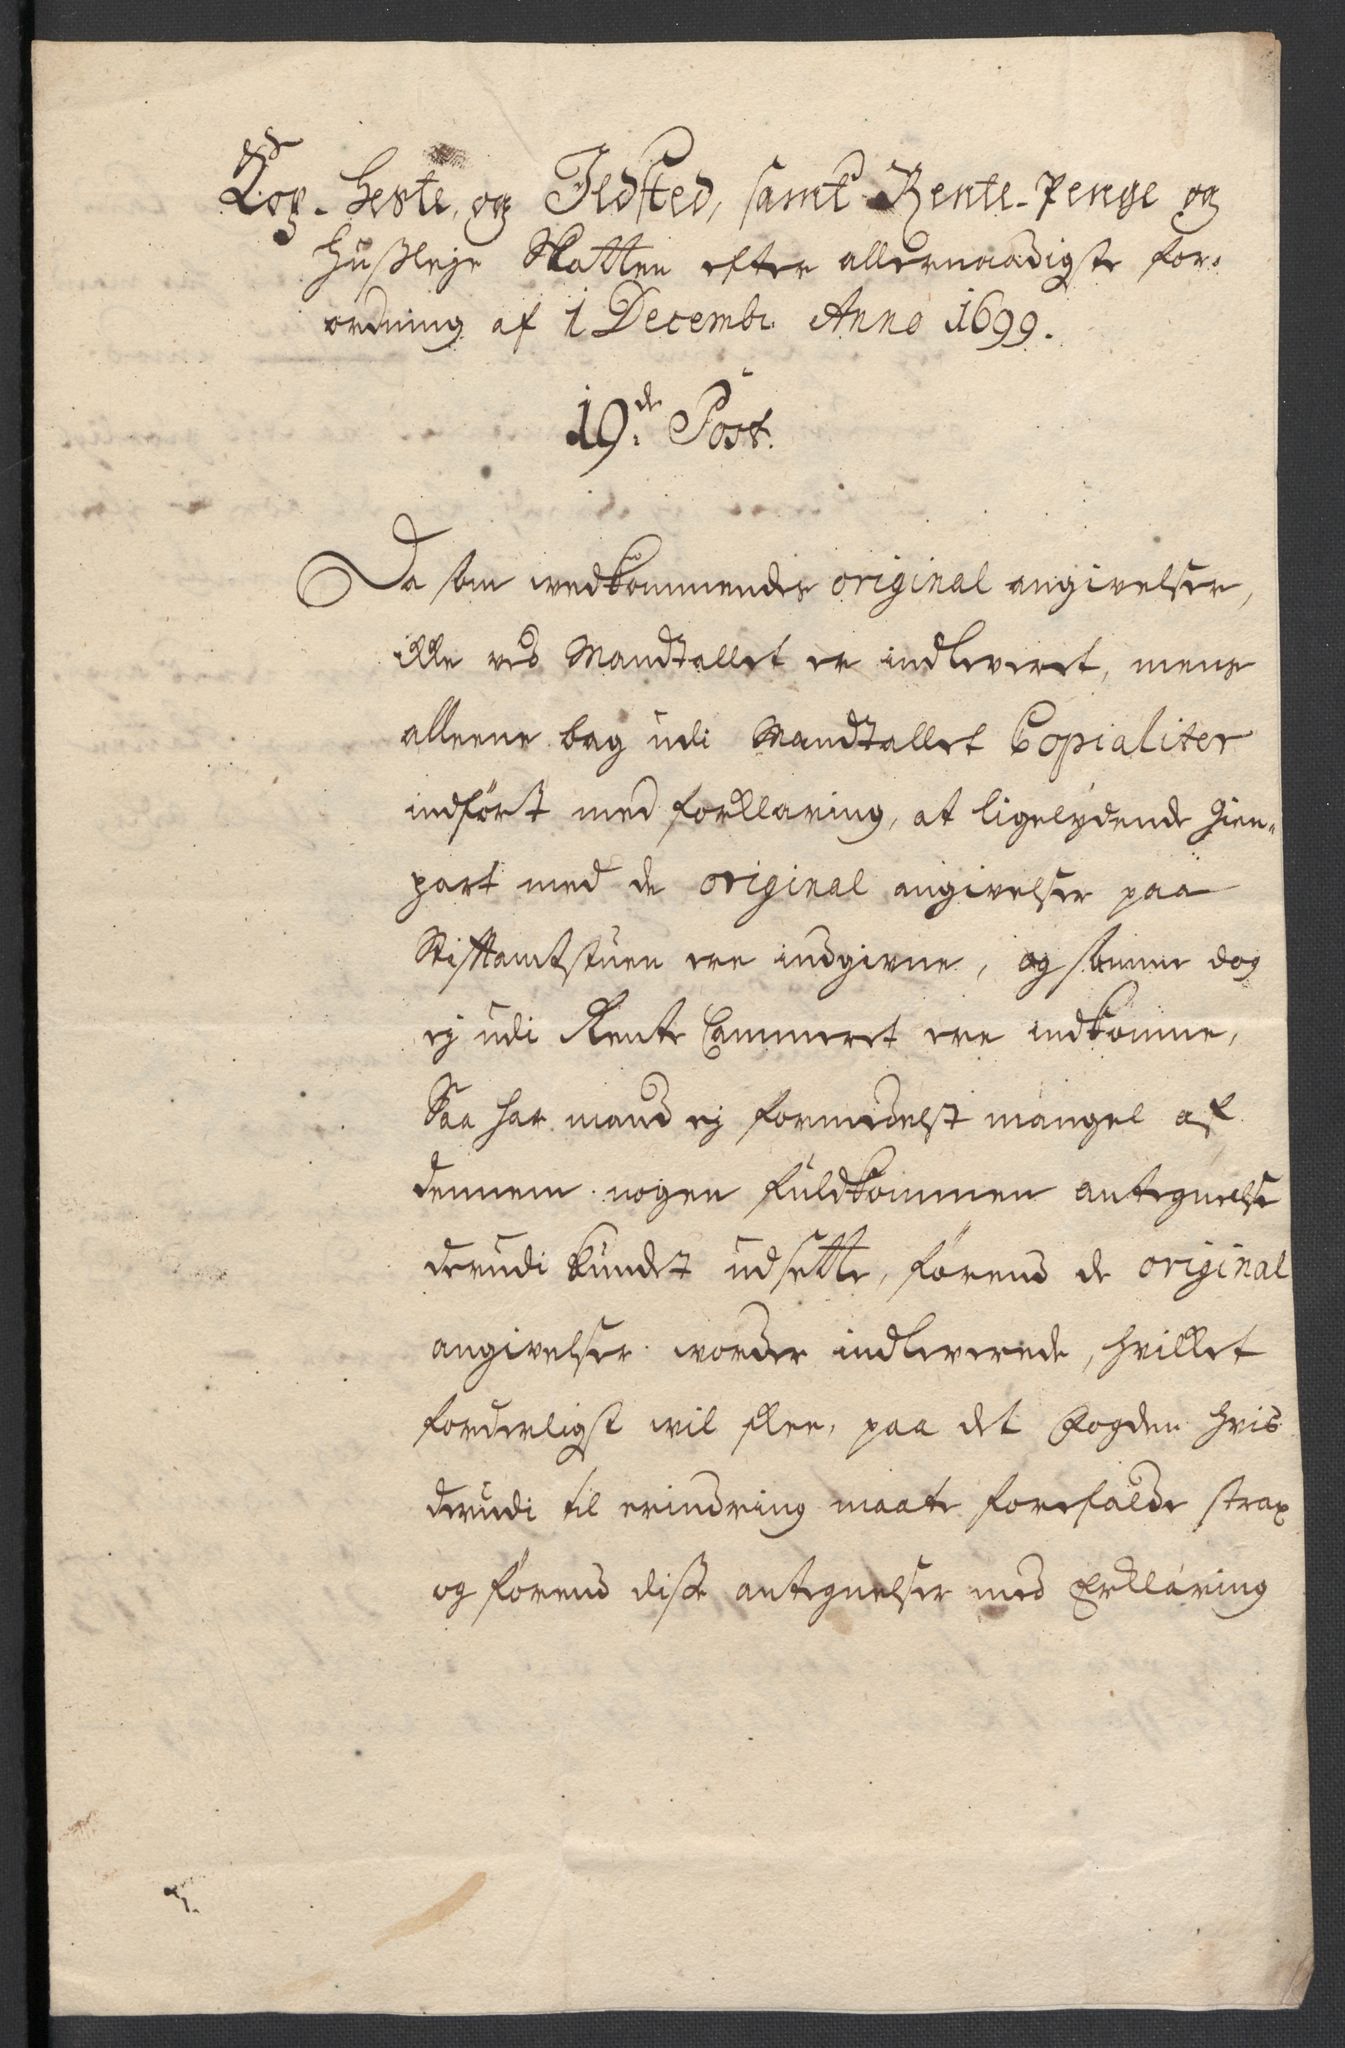 Kop- Heste, og Ildsted, samt Rente-Penge og
Hußleje Skatten efter allernaadigste for-
ordning af 1 Decembr. Anno 1699.
19de Post.
Da som wedkommendes original angivelser,
icke ved Mandtallet er indleveret, mens
alleene bag udi Mandtallet Copialiter
indført med forklaring, at ligelydende gien-
part med de original angivelser paa
Stiftamtstuen ere indgivne, og samme dog
ej udi Rente Cammeret ere indkomne,
Saa har mand ej formedelst mangel af
dennem nogen fuldkommen antegnelse
derudi kundet udsette, førend de original
angivelser worder indleverede, hvilket
forderligst wil skee, paa det Fogden hvis
derudi til erindring maate forefalde strax
og førend disse antegnelser med Erklæring